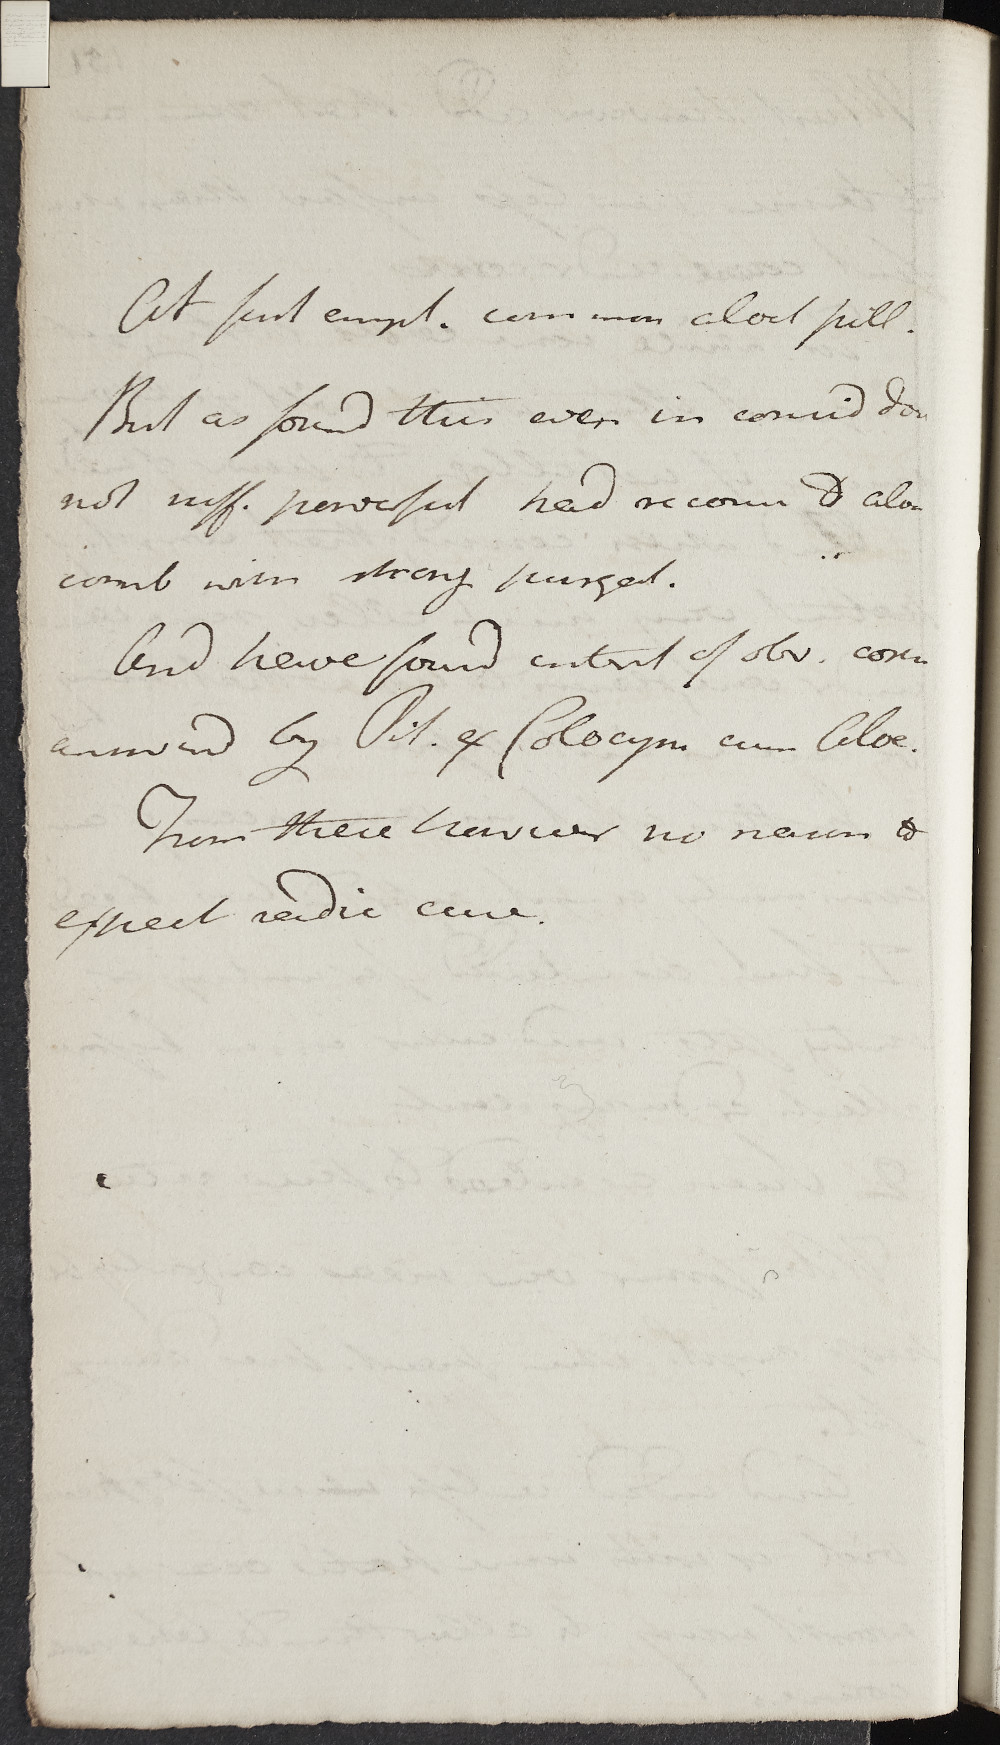 At first empl. common aloet pill.
But as found this even in consid dos
not suff. powerful had recour to aloe
comb with strong purgat.
And have found intent of obv. cos
answerd by Pil. ex Colocyn cum Aloe.
From these however no reason to
expect radic cure.